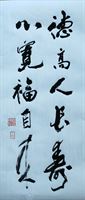 德高人长寿
心宽福自来